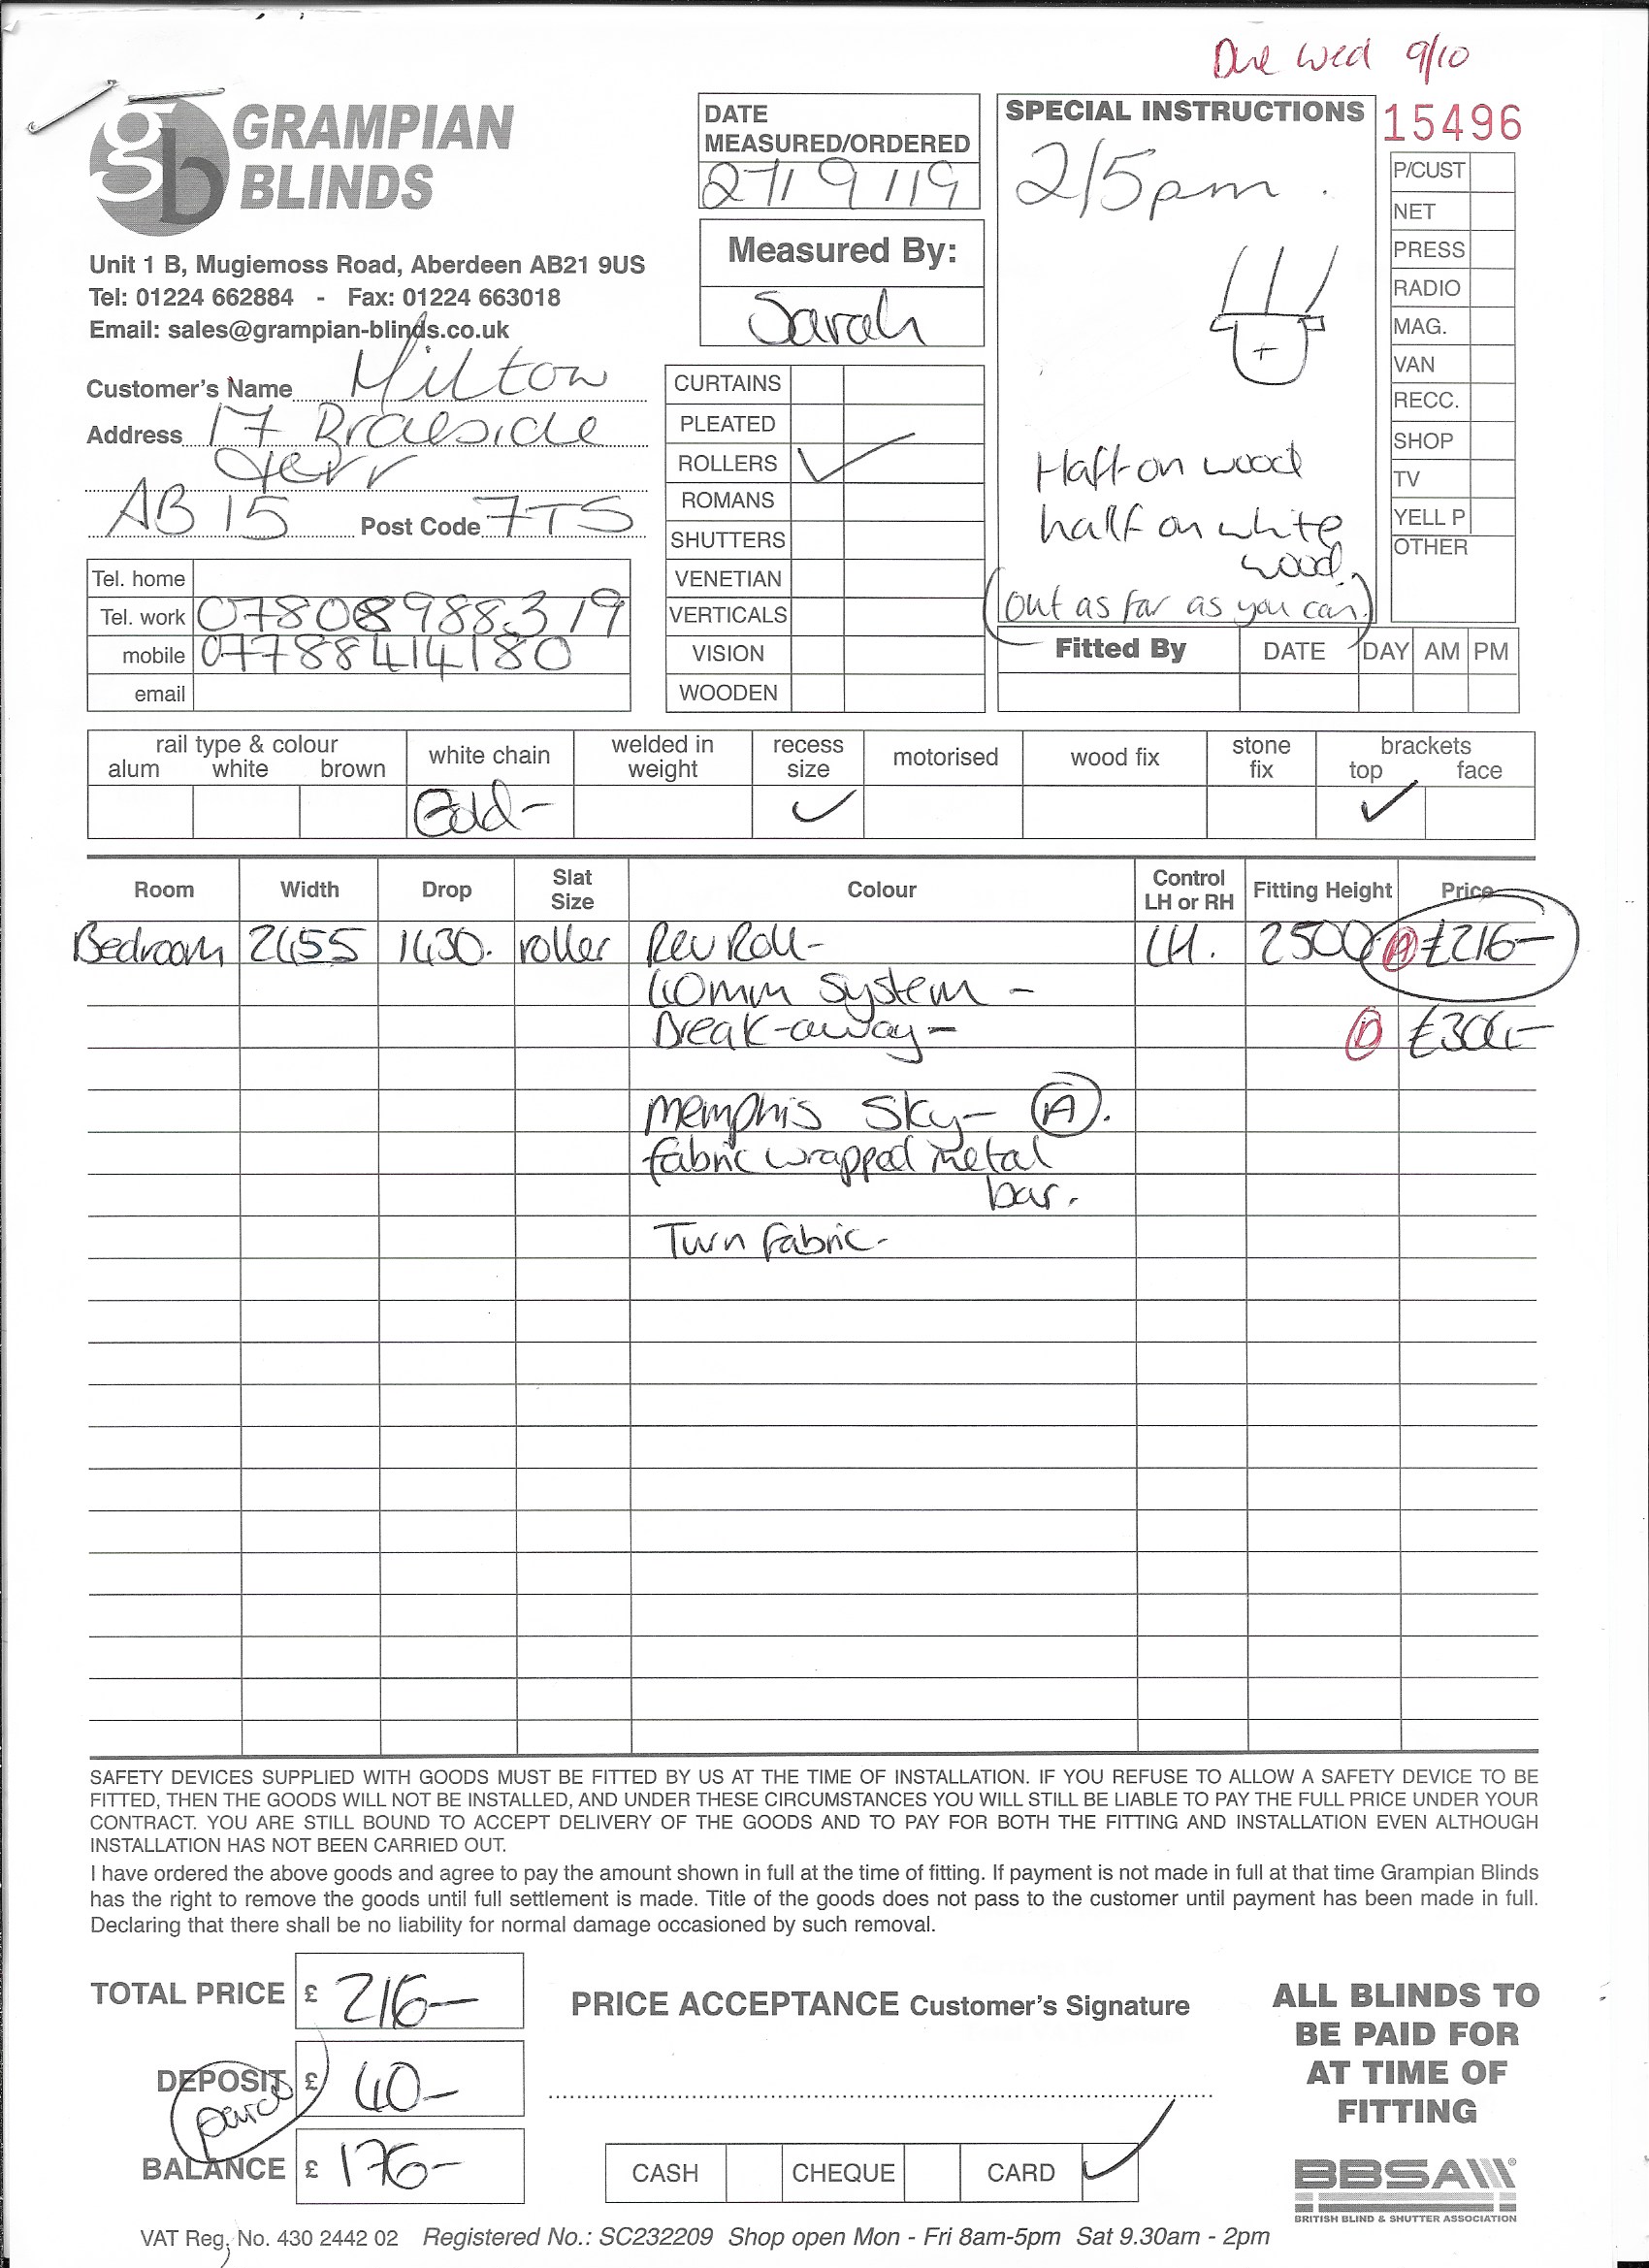 Due Wed 9/10
GRAMPIAN
BLINDS
Unit 1 B, Mugiemoss Road, Aberdeen AB21 9US
Tel: 01224 662884 - Fax: 01224 663018
Email: sales@grampian-blinds.co.uk
Customer's Name Milton
Address 17 Braeside
Terr
AB15 Post Code 7TS
Tel. home
Tel. work 07808988319
mobile 07788414180
email
DATE
MEASURED/ORDERED
27/9/19
Measured By:
Sarah
CURTAINS
PLEATED
ROLLERS ✓
ROMANS
SHUTTERS
VENETIAN
VERTICALS
VISION
WOODEN
SPECIAL INSTRUCTIONS
2/5pm.
Half on wood
half on white
wood.
(out as far as you can.)
15496
P/CUST
NET
PRESS
RADIO
MAG.
VAN
RECC.
SHOP
TV
YELL P
OTHER
Fitted By DATE DAY AM PM
rail type & colour
alum white brown
white chain
Gold-
welded in
weight
recess
size
✓
motorised
wood fix
stone
fix
brackets
top face
✓
Room Width Drop Slat Size Colour Control LH or RH Fitting Height Price
Bedroom 2455 1430. roller Rev Roll- LH. 2500 A £216-
40mm system -
Break-away- D £304-
Memphis Sky- A.
fabric wrapped metal
bar.
Turn fabric-
SAFETY DEVICES SUPPLIED WITH GOODS MUST BE FITTED BY US AT THE TIME OF INSTALLATION. IF YOU REFUSE TO ALLOW A SAFETY DEVICE TO BE
FITTED, THEN THE GOODS WILL NOT BE INSTALLED, AND UNDER THESE CIRCUMSTANCES YOU WILL STILL BE LIABLE TO PAY THE FULL PRICE UNDER YOUR
CONTRACT. YOU ARE STILL BOUND TO ACCEPT DELIVERY OF THE GOODS AND TO PAY FOR BOTH THE FITTING AND INSTALLATION EVEN ALTHOUGH
INSTALLATION HAS NOT BEEN CARRIED OUT.
I have ordered the above goods and agree to pay the amount shown in full at the time of fitting. If payment is not made in full at that time Grampian Blinds
has the right to remove the goods until full settlement is made. Title of the goods does not pass to the customer until payment has been made in full.
Declaring that there shall be no liability for normal damage occasioned by such removal.
TOTAL PRICE £ 216-
DEPOSIT £ 40-
paid
BALANCE £ 176-
PRICE ACCEPTANCE Customer's Signature
CASH CHEQUE CARD ✓
ALL BLINDS TO
BE PAID FOR
AT TIME OF
FITTING
BBSA
BRITISH BLIND & SHUTTER ASSOCIATION
VAT Reg. No. 430 2442 02 Registered No.: SC232209 Shop open Mon - Fri 8am-5pm Sat 9.30am - 2pm